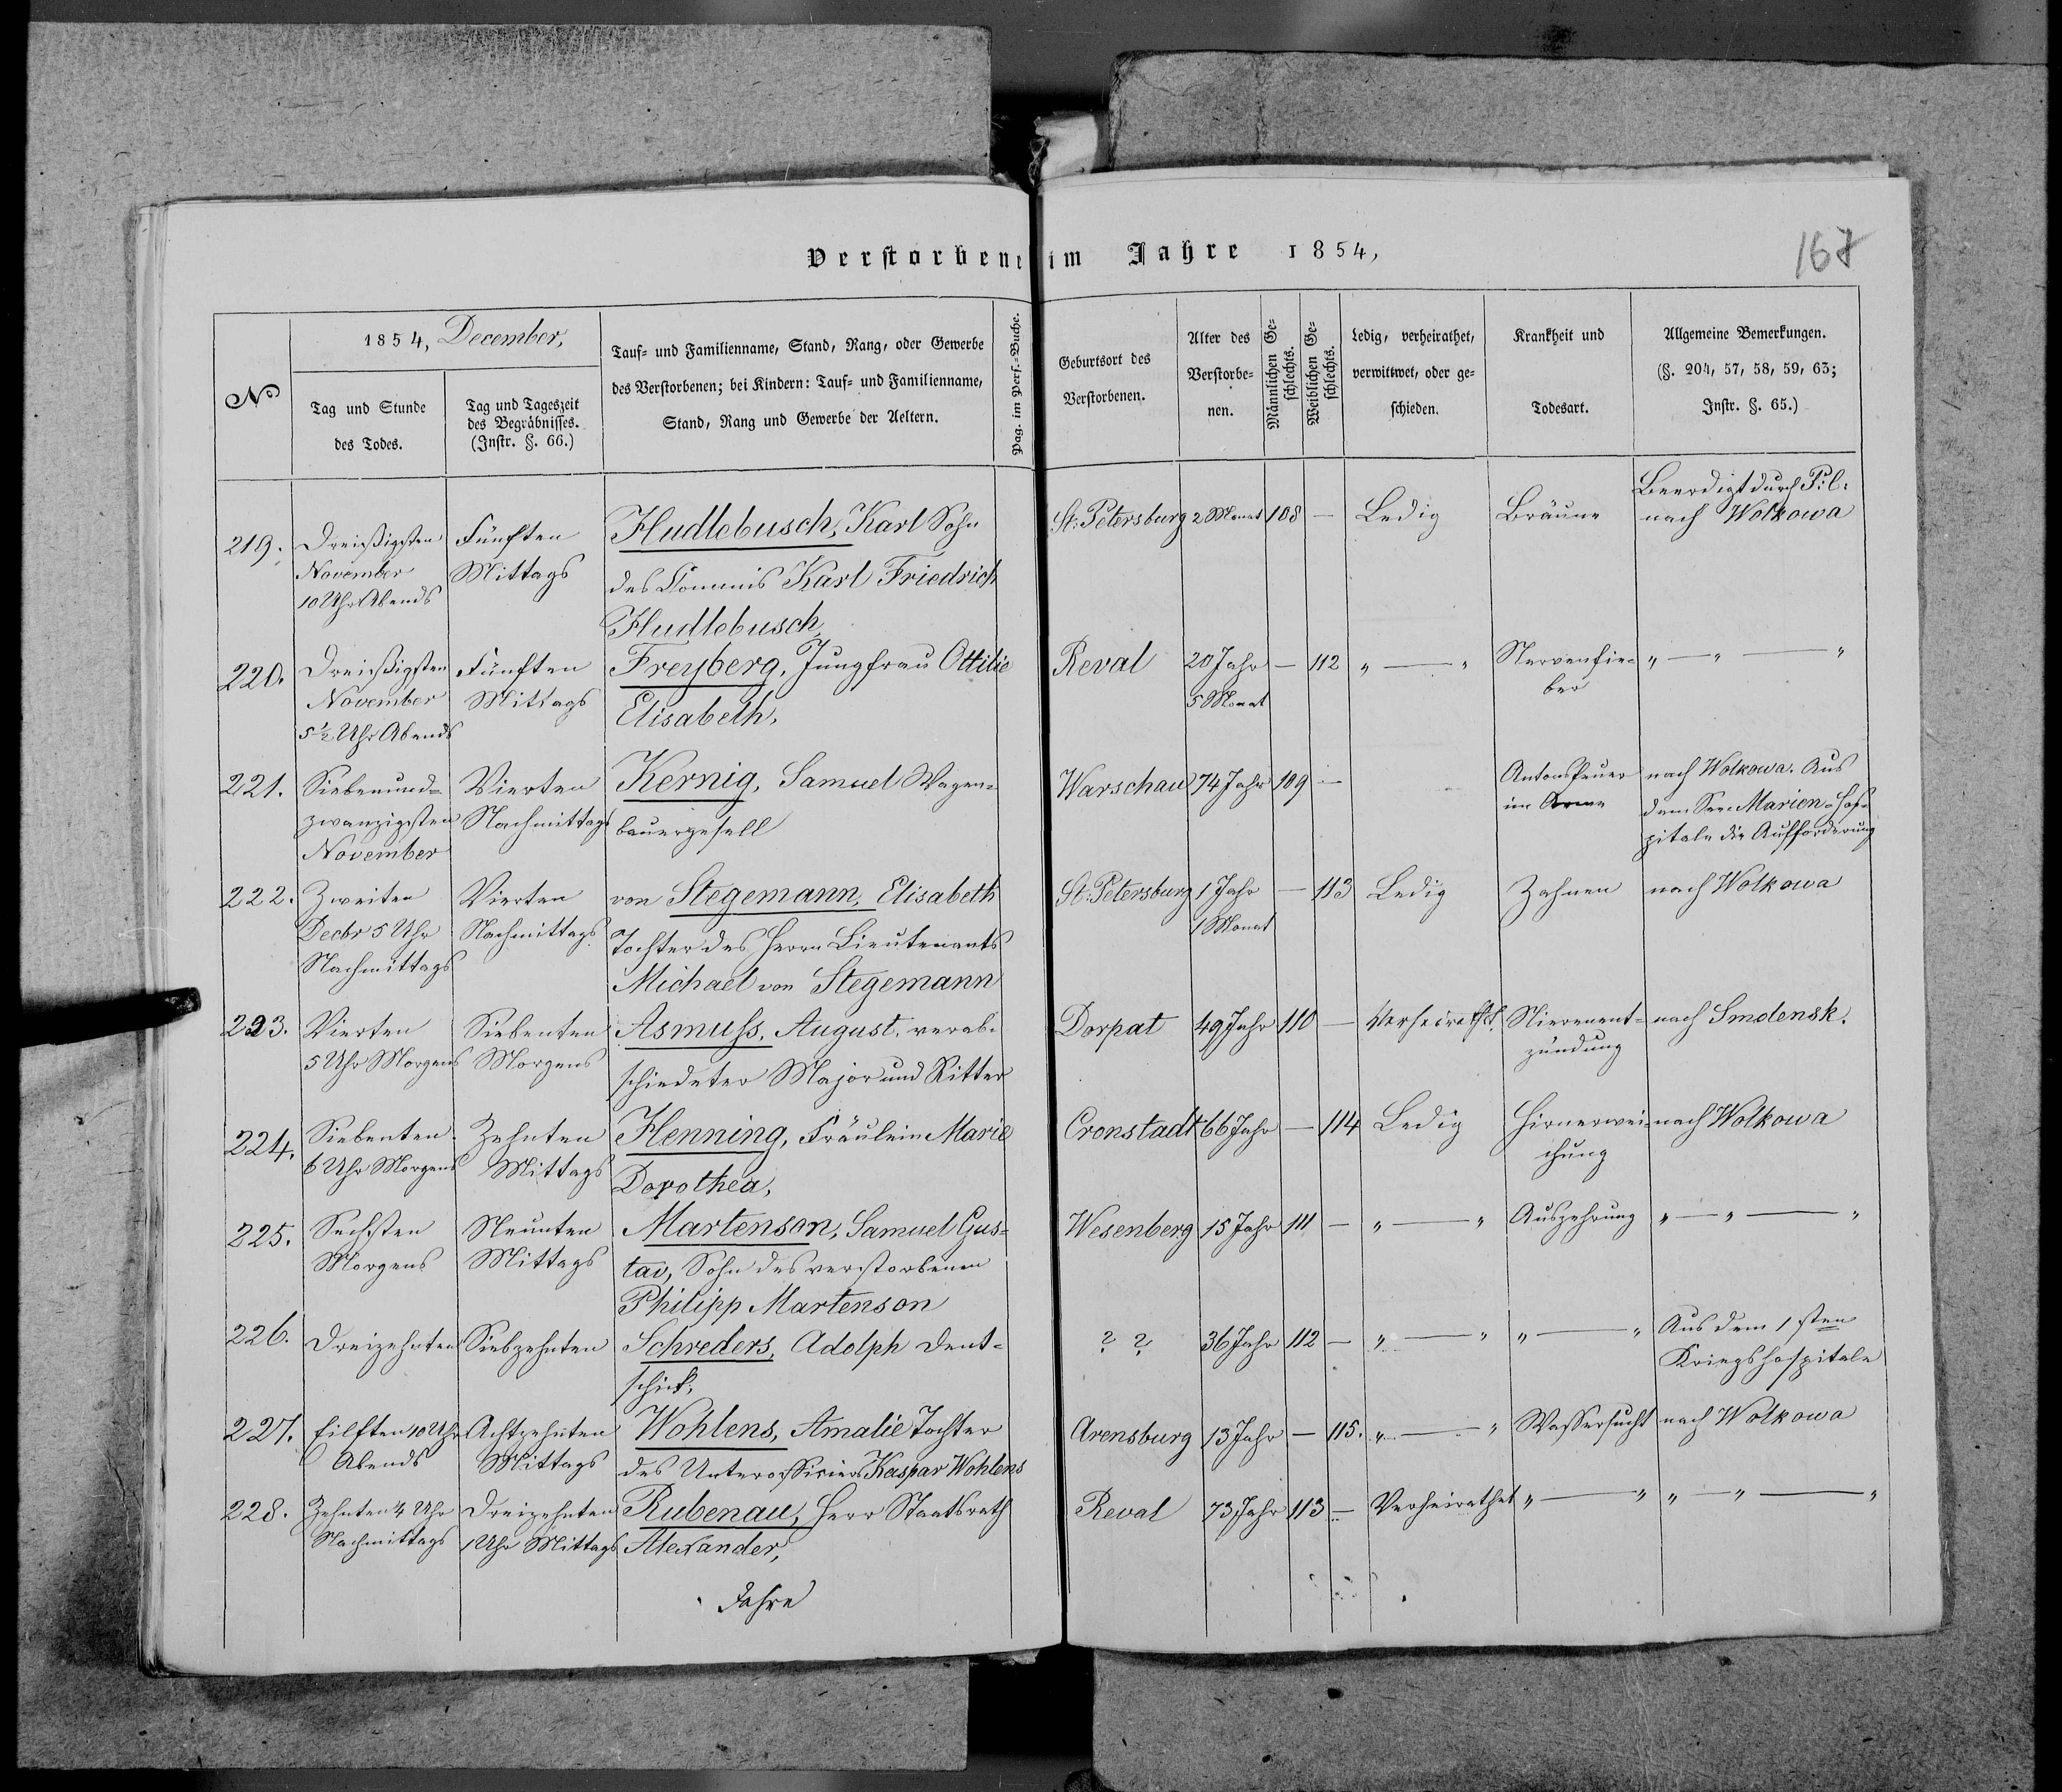 Verstorbene im Jahre 1854,
167
No
1854, December,
Tag und Stunde
des Todes.
Tag und Tageszeit
des Begräbnisses.
(Instr. §. 66.)
Tauf- und Familienname, Stand, Rang, oder Gewerbe
des Verstorbenen; bei Kindern: Tauf- und Familienname,
Stand, Rang und Gewerbe der Aeltern.
Pag. im Pers.-Buche.
Geburtsort des
Verstorbenen.
Alter des
Verstorbe-
nen.
Männlichen Ge-
schlechts.
Weiblichen Ge-
schlechts.
Ledig, verheirathet,
verwittwet, oder ge-
schieden.
Krankheit und
Todesart.
Allgemeine Bemerkungen.
(§. 204, 57, 58, 59, 63;
Instr. §. 65.)
219.
Dreißigsten
November
10 Uhr Abends
Fünften
Mittags
Hudlebusch, Karl Sohn
des Commis Karl Friedrich
Hudlebusch
St. Petersburg
2 Monat
108
—
Ledig
Bräune
Beerdigt durch Pil.
nach Wolkowa
220.
Dreißigsten
November
5½ Uhr Abends
Fünften
Mittags
Freyberg, Jungfrau Ottilie
Elisabeth,
Reval
20 Jahr
5 Monat
—
112
„ — „
Nervenfie-
ber
„ — „ — „
221.
Siebenund-
zwanzigsten
November
Vierten
Nachmittags
Kernig, Samuel Wagen-
bauergesell
Warschau
74 Jahr
109
—
Antonsfeuer
im Arme
nach Wolkowa. Aus
dem Marien-Hos-
pitale die Aufforderung
222.
Zweiten
Decbr 5 Uhr
Nachmittags
Vierten
Nachmittags
von Stegemann, Elisabeth
Tochter des Herrn Lieutenants
Michael von Stegemann
St. Petersburg
1 Jahr
1 Monat
—
113
Ledig
Zahnen
nach Wolkowa
223.
Vierten
5 Uhr Morgens
Siebenten
Morgens
Asmuss, August, verab-
schiedeter Major und Ritter
Dorpat
49 Jahr
110
—
Verheirathet.
Nierenent-
zündung
nach Smolensk.
224.
Siebenten
6 Uhr Morgens
Zehnten
Mittags
Henning, Fräulein Marie
Dorothea,
Cronstadt
66 Jahr
—
114
Ledig
Hirnerwei-
chung
nach Wolkowa
225.
Sechsten
Morgens
Neunten
Mittags
Martenson, Samuel Gus-
tav, Sohn des verstorbenen
Philipp Martenson
Wesenberg
15 Jahr
111
—
„ — „
Auszehrung
„ — „ — „
226.
Dreizehnten
Siebzehnten
Schreders, Adolph Dent-
schick,
? ?
36 Jahr
112
—
„ — „
„ — „
Aus dem 1sten
Kriegshospitale
227.
Eilften 10 Uhr
Abends
Achtzehnten
Mittags
Wohlens, Amalie Tochter
des Unterofficiers Kaspar Wohlens
Arensburg
13 Jahr
—
115.
„ — „
Wassersucht
nach Wolkowa
228.
Zehnten 4 Uhr
Nachmittags
Dreizehnten
1 Uhr Mittags
Rubenau, Herr Staatsrath
Alexander,
Reval
73 Jahr
113
—
Verheirathet
„ — „
„ — „ — „